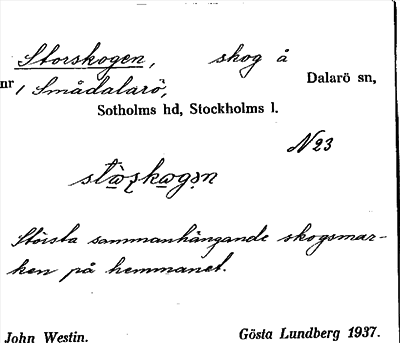 Storskogen, skog å
nr 1 Smådalarö, Dalarö sn,
Sotholms hd, Stockholms l.
N23
Största sammanhängande skogsmar-
ken på hemmanet.
John Westin. Gösta Lundberg 1937.